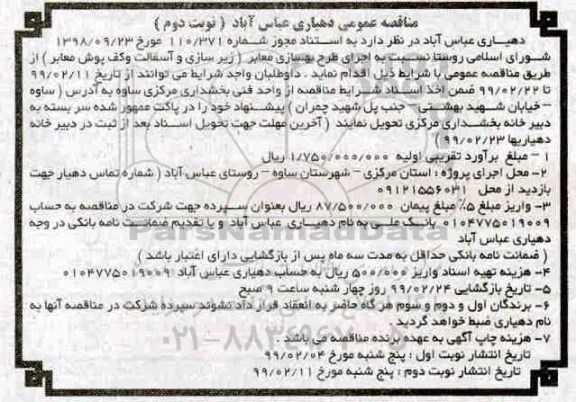 مناقصه عمومی دهیاری عباس آباد ( نوبت دوم )
دهیاری عباس آباد در نظر دارد به استناد مجوز شماره ۱۱۰/۳۷۱ مورخ ۱۳۹۸/۰۹/۲۳
شورای اسلامی روستا نسبت به اجرای طرح بهسازی معابر ( زیر سازی و آسفالت وکف پوش معابر ) از
طریق مناقصه عمومی با شرایط ذیل اقدام نماید . داوطلبان واجد شرایط می توانند از تاریخ ۹۹/۰۲/۱۱
تا ۹۹/۰۲/۲۲ ضمن اخذ اسناد شرایط مناقصه از واحد فنی بخشداری مرکزی ساوه به آدرس ( ساوه
– خیابان شهید بهشتی – جنب پل شهید چمران ) پیشنهاد خود را در پاکت ممهور شده سر بسته به
دبیر خانه بخشداری مرکزی تحویل نمایند ( آخرین مهلت جهت تحویل اسناد بعد از ثبت در دبیر خانه
دهیاریها ۹۹/۰۲/۲۳ )
۱ – مبلغ برآورد تقریبی اولیه ۱/۷۵۰/۰۰۰/۰۰۰ ریال
۲– محل اجرای پروژه : استان مرکزی – شهرستان ساوه – روستای عباس آباد ( شماره تماس دهیار جهت
بازدید از محل ۰۹۱۲۱۵۵۶۰۳۱ )
۳– واریز مبلغ ۵٪ مبلغ پیمان ۸۷/۵۰۰/۰۰۰ ریال بعنوان سپرده جهت شرکت در مناقصه به حساب
۰۱۰۴۷۷۵۰۱۹۰۰۹ بانک ملی به نام دهیاری عباس آباد و یا تقدیم ضمانت نامه بانکی در وجه
دهیاری عباس آباد
( ضمانت نامه بانکی حداقل به مدت سه ماه پس از بازگشایی دارای اعتبار باشد )
۴– هزینه تهیه اسناد واریز ۵۰۰/۰۰۰ ریال به حساب دهیاری عباس آباد ۰۱۰۴۷۷۵۰۱۹۰۰۹
۵– تاریخ بازگشایی ۹۹/۰۲/۲۴ روز چهار شنبه ساعت ۹ صبح
۶– برندگان اول و دوم و سوم هر گاه حاضر به انعقاد قرار داد نشوند سپرده شرکت در مناقصه آنها به
نام دهیاری ضبط خواهد گردید .
۷– هزینه چاپ آگهی به عهده برنده مناقصه می باشد .
تاریخ انتشار نوبت اول : پنج شنبه مورخ ۹۹/۰۲/۰۴
تاریخ انتشار نوبت دوم : پنج شنبه مورخ ۹۹/۰۲/۱۱
ParsNamadData